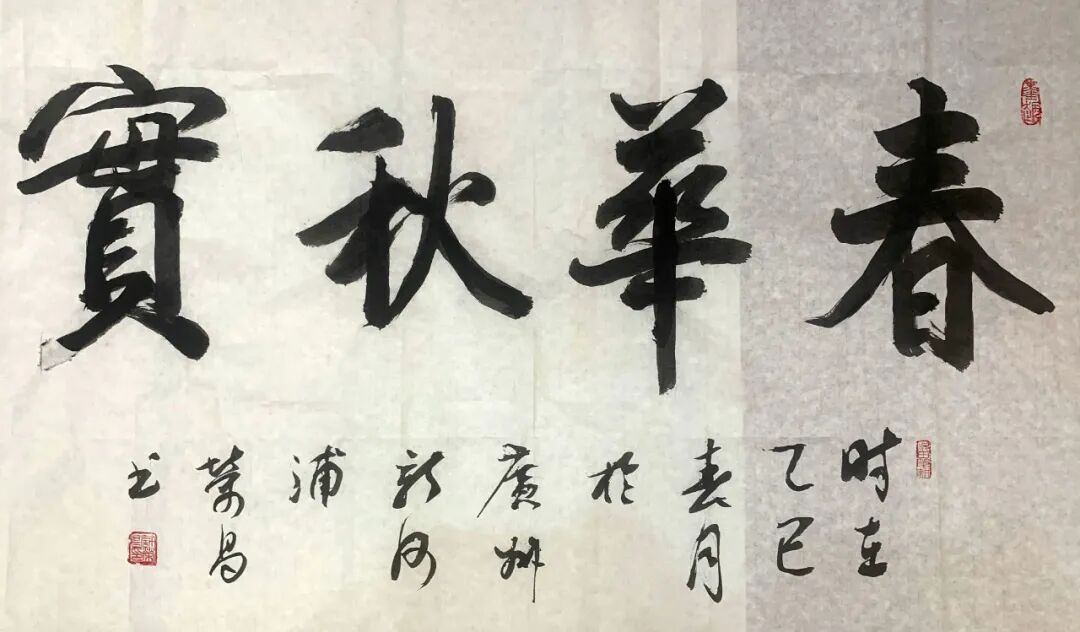 春華秋實
时在
乙巳
春月
於
廣州
新河
浦
榮昌
书